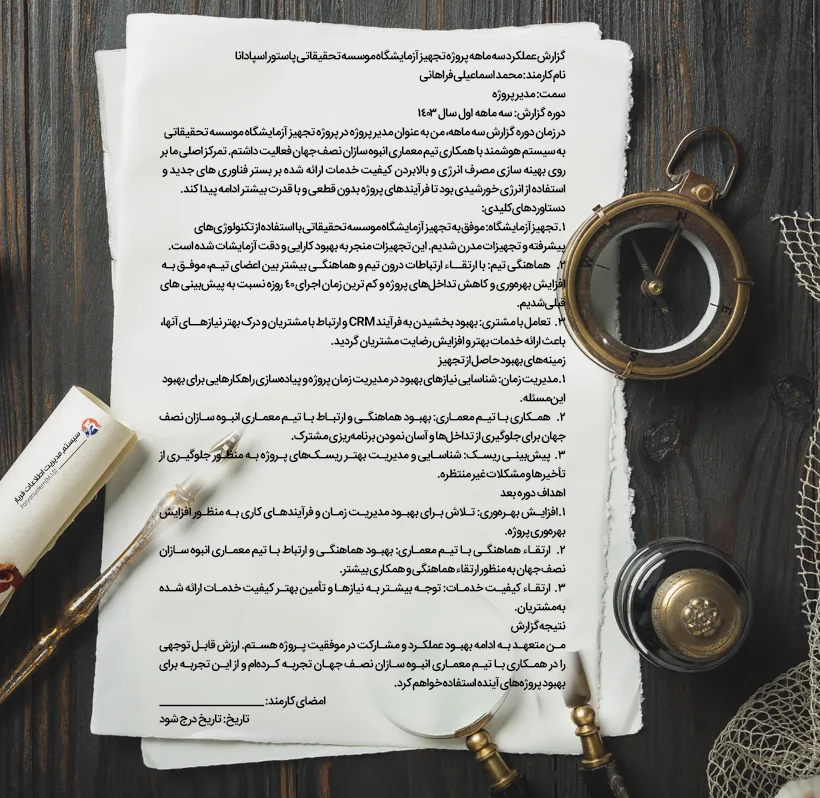 گزارش عملکرد سه ماهه پروژه تجهیز آزمایشگاه موسسه تحقیقاتی پاستور اسپادانا
نام کارمند: محمد اسماعیلی فراهانی
سمت: مدیر پروژه
دوره گزارش: سه ماهه اول سال ۱۴۰۳
در زمان دوره گزارش سه ماهه، من به عنوان مدیر پروژه در پروژه تجهیز آزمایشگاه موسسه تحقیقاتی
به سیستم هوشمند با همکاری تیم معماری انبوه سازان نصف جهان فعالیت داشتم. تمرکز اصلی ما بر
روی بهینه سازی مصرف انرژی و بالابردن کیفیت خدمات ارائه شده بر بستر فناوری های جدید و
استفاده از انرژی خورشیدی بود تا فرآیندهای پروژه بدون قطعی و با قدرت بیشتر ادامه پیدا کند.
دستاوردهای کلیدی:
۱. تجهیز آزمایشگاه: موفق به تجهیز آزمایشگاه موسسه تحقیقاتی با استفاده از تکنولوژی‌های
پیشرفته و تجهیزات مدرن شدیم. این تجهیزات منجر به بهبود کارایی و دقت آزمایشات شده است.
۲. هماهنگی تیم: با ارتقاء ارتباطات درون تیم و هماهنگی بیشتر بین اعضای تیم، موفق به
افزایش بهره‌وری و کاهش تداخل‌های پروژه و کم ترین زمان اجرای ۴۰ روزه نسبت به پیش‌بینی های
قبلی شدیم.
۳. تعامل با مشتری: بهبود بخشیدن به فرآیند CRM و ارتباط با مشتریان و درک بهتر نیازهای آنها،
باعث ارائه خدمات بهتر و افزایش رضایت مشتریان گردید.
زمینه‌های بهبود حاصل از تجهیز
۱. مدیریت زمان: شناسایی نیازهای بهبود در مدیریت زمان پروژه و پیاده‌سازی راهکارهایی برای بهبود
این مسئله.
۲. همکاری با تیم معماری: بهبود هماهنگی و ارتباط با تیم معماری انبوه سازان نصف
جهان برای جلوگیری از تداخل‌ها و آسان نمودن برنامه‌ریزی مشترک.
۳. پیش‌بینی ریسک: شناسایی و مدیریت بهتر ریسک‌های پروژه به منظور جلوگیری از
تأخیرها و مشکلات غیر منتظره.
اهداف دوره بعد
۱. افزایش بهره‌وری: تلاش برای بهبود مدیریت زمان و فرآیندهای کاری به منظور افزایش
بهره‌وری پروژه.
۲. ارتقاء هماهنگی با تیم معماری: بهبود هماهنگی و ارتباط با تیم معماری انبوه سازان
نصف جهان به منظور ارتقاء هماهنگی و همکاری بیشتر.
۳. ارتقاء کیفیت خدمات: توجه بیشتر به نیازها و تأمین بهتر کیفیت خدمات ارائه شده
به مشتریان.
نتیجه گزارش
من متعهد به ادامه بهبود عملکرد و مشارکت در موفقیت پروژه هستم. ارزش قابل توجهی
را در همکاری با تیم معماری انبوه سازان نصف جهان تجربه کرده‌ام و از این تجربه برای
بهبود پروژه‌های آینده استفاده خواهم کرد.
امضای کارمند: ____________
تاریخ: تاریخ درج شود
سیستم مدیریت اطلاعات فریار
N
E
S
W